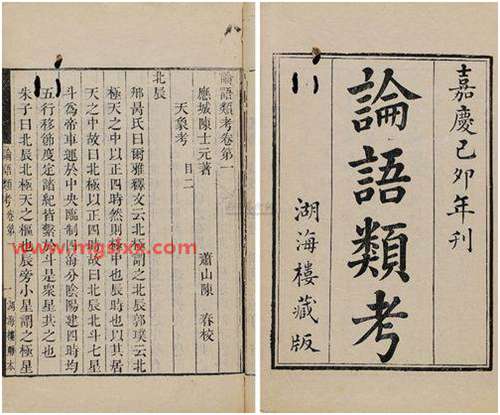 嘉慶己卯年刊
論語類考
湖海樓藏版
論語類考卷第一
應城陳士元著
蕭山陳 春校
天象考 目二
北辰
邢昺氏曰爾雅釋文云北極謂之北辰郭璞云北
極天之中以正四時然則極中也辰時也以其居
天之中故曰北極以正四時故曰北辰北斗七星
斗為帝車運於中央臨制四海分陰陽建四時均
五行移節度定諸紀皆繫於斗是衆星共之也
朱子曰北辰北極天之樞也辰旁小星謂之極星
論語類考卷第
一
湖海樓雕本
www.mgsxx.com